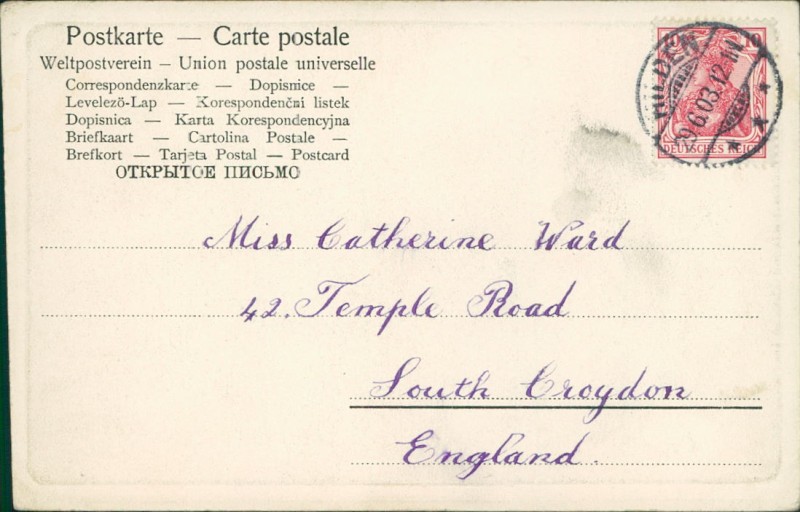 Postkarte — Carte postale
Weltpostverein – Union postale universelle
Correspondenzkarte — Dopisnice —
Levelezö-Lap — Korespondenční listek
Dopisnica — Karta Korespondencyjna
Briefkaart — Cartolina Postale —
Brefkort — Tarjeta Postal — Postcard
ОТКРЫТОЕ ПИСЬМО
10
HILDEN
9.6.03.12
DEUTSCHES REICH
Miss Catherine Ward
42. Temple Road
South Croydon
England.